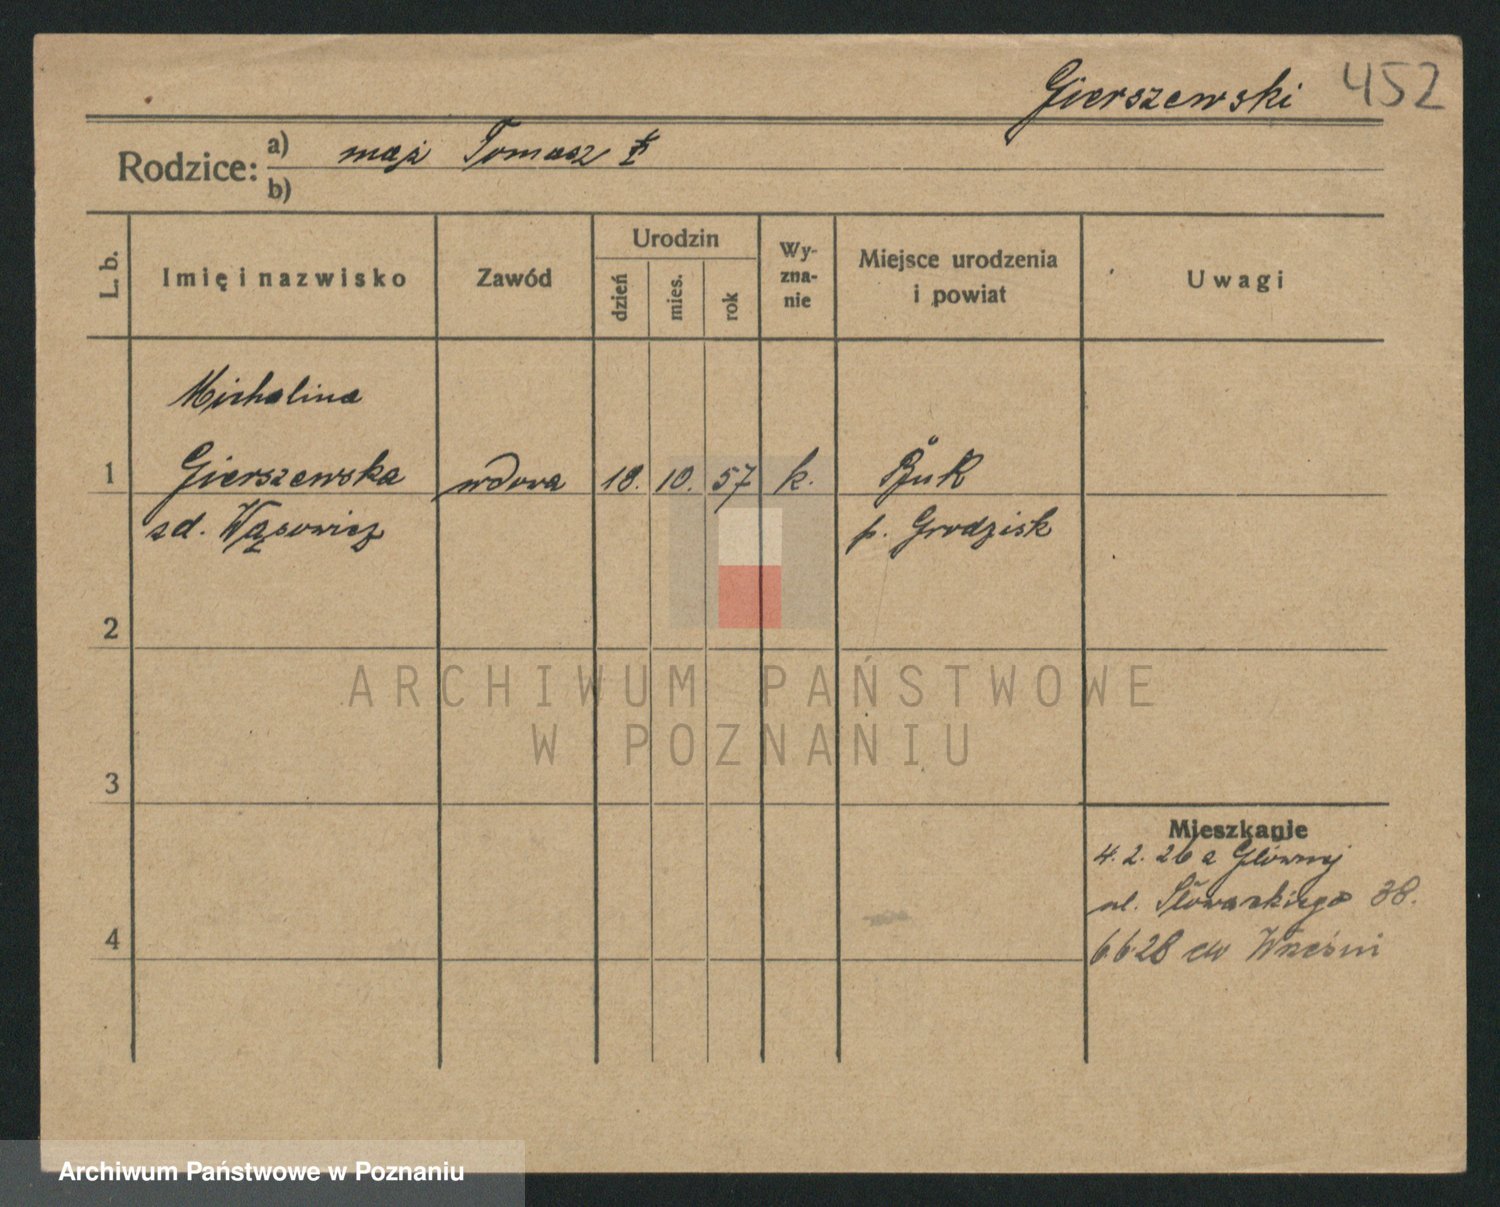 Gierszewski 452
Rodzice: a) mąż Tomasz
b)
L. b.
Imię i nazwisko
Zawód
Urodzin
dzień
mies.
rok
Wy-
zna-
nie
Miejsce urodzenia
i powiat
Uwagi
Michalina
1 Gierszewska wdowa 18. 10. 57 k. Buk
zd. Wąsowicz p. Grodzisk
2
ARCHIWUM PAŃSTWOWE
W POZNANIU
3
Mieszkanie
4. 2. 26 z Głównej
ul. Słowackiego 38.
4
6628 do Wrześni
Archiwum Państwowe w Poznaniu